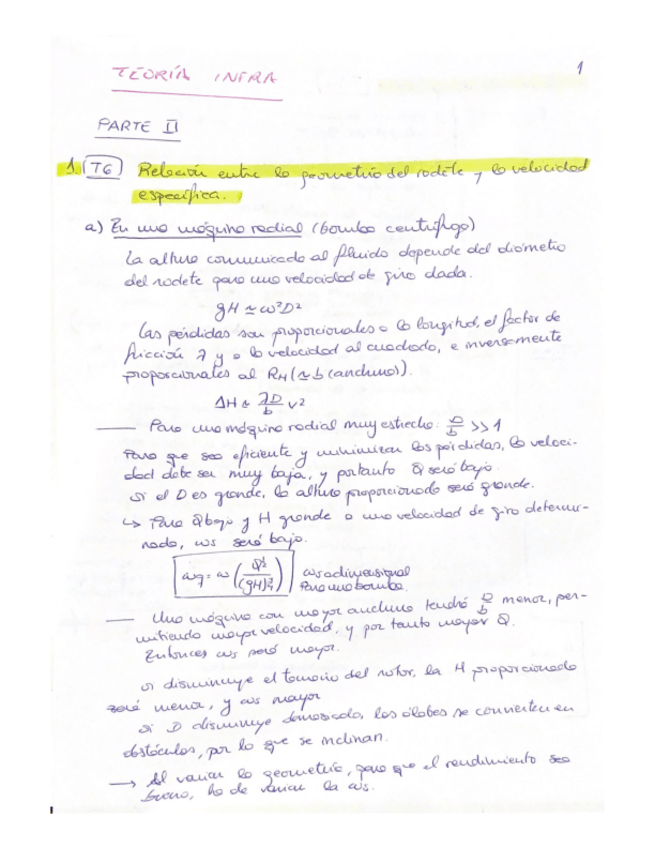 TEORÍA INFRA
1
PARTE II
1. (T6) Relación entre la geometría del rodete y la velocidad
específica.
a) En una máquina radial (bomba centrífuga)
La altura comunicada al fluido depende del diámetro
del rodete para una velocidad de giro dada.
gH ≃ ω²D²
Las pérdidas son proporcionales a la longitud, el factor de
fricción λ y a la velocidad al cuadrado, e inversamente
proporcionales al RH (≃ b (anchura)).
ΔH ∝ λD/b v²
— Para una máquina radial muy estrecha: D/b >> 1
Para que sea eficiente y minimizar las pérdidas, la veloci-
dad debe ser muy baja, y por tanto Q será bajo.
Si el D es grande, la altura proporcionada será grande.
↳ Para Q bajo y H grande a una velocidad de giro determi-
nada, ωs será bajo.
ωq = ω (Q^½/(gH)^¾) ωs adimensional
Para una bomba.
— Una máquina con mayor anchura tendrá D/b menor, per-
mitiendo mayor velocidad, y por tanto mayor Q.
Entonces ωs será mayor.
Si disminuye el tamaño del rotor, la H proporcionada
será menor, y ωs mayor
Si D disminuye demasiado, los álabes se convierten en
obstáculos, por lo que se inclinan.
→ Al variar la geometría, para que el rendimiento sea
bueno, ha de variar la ωs.